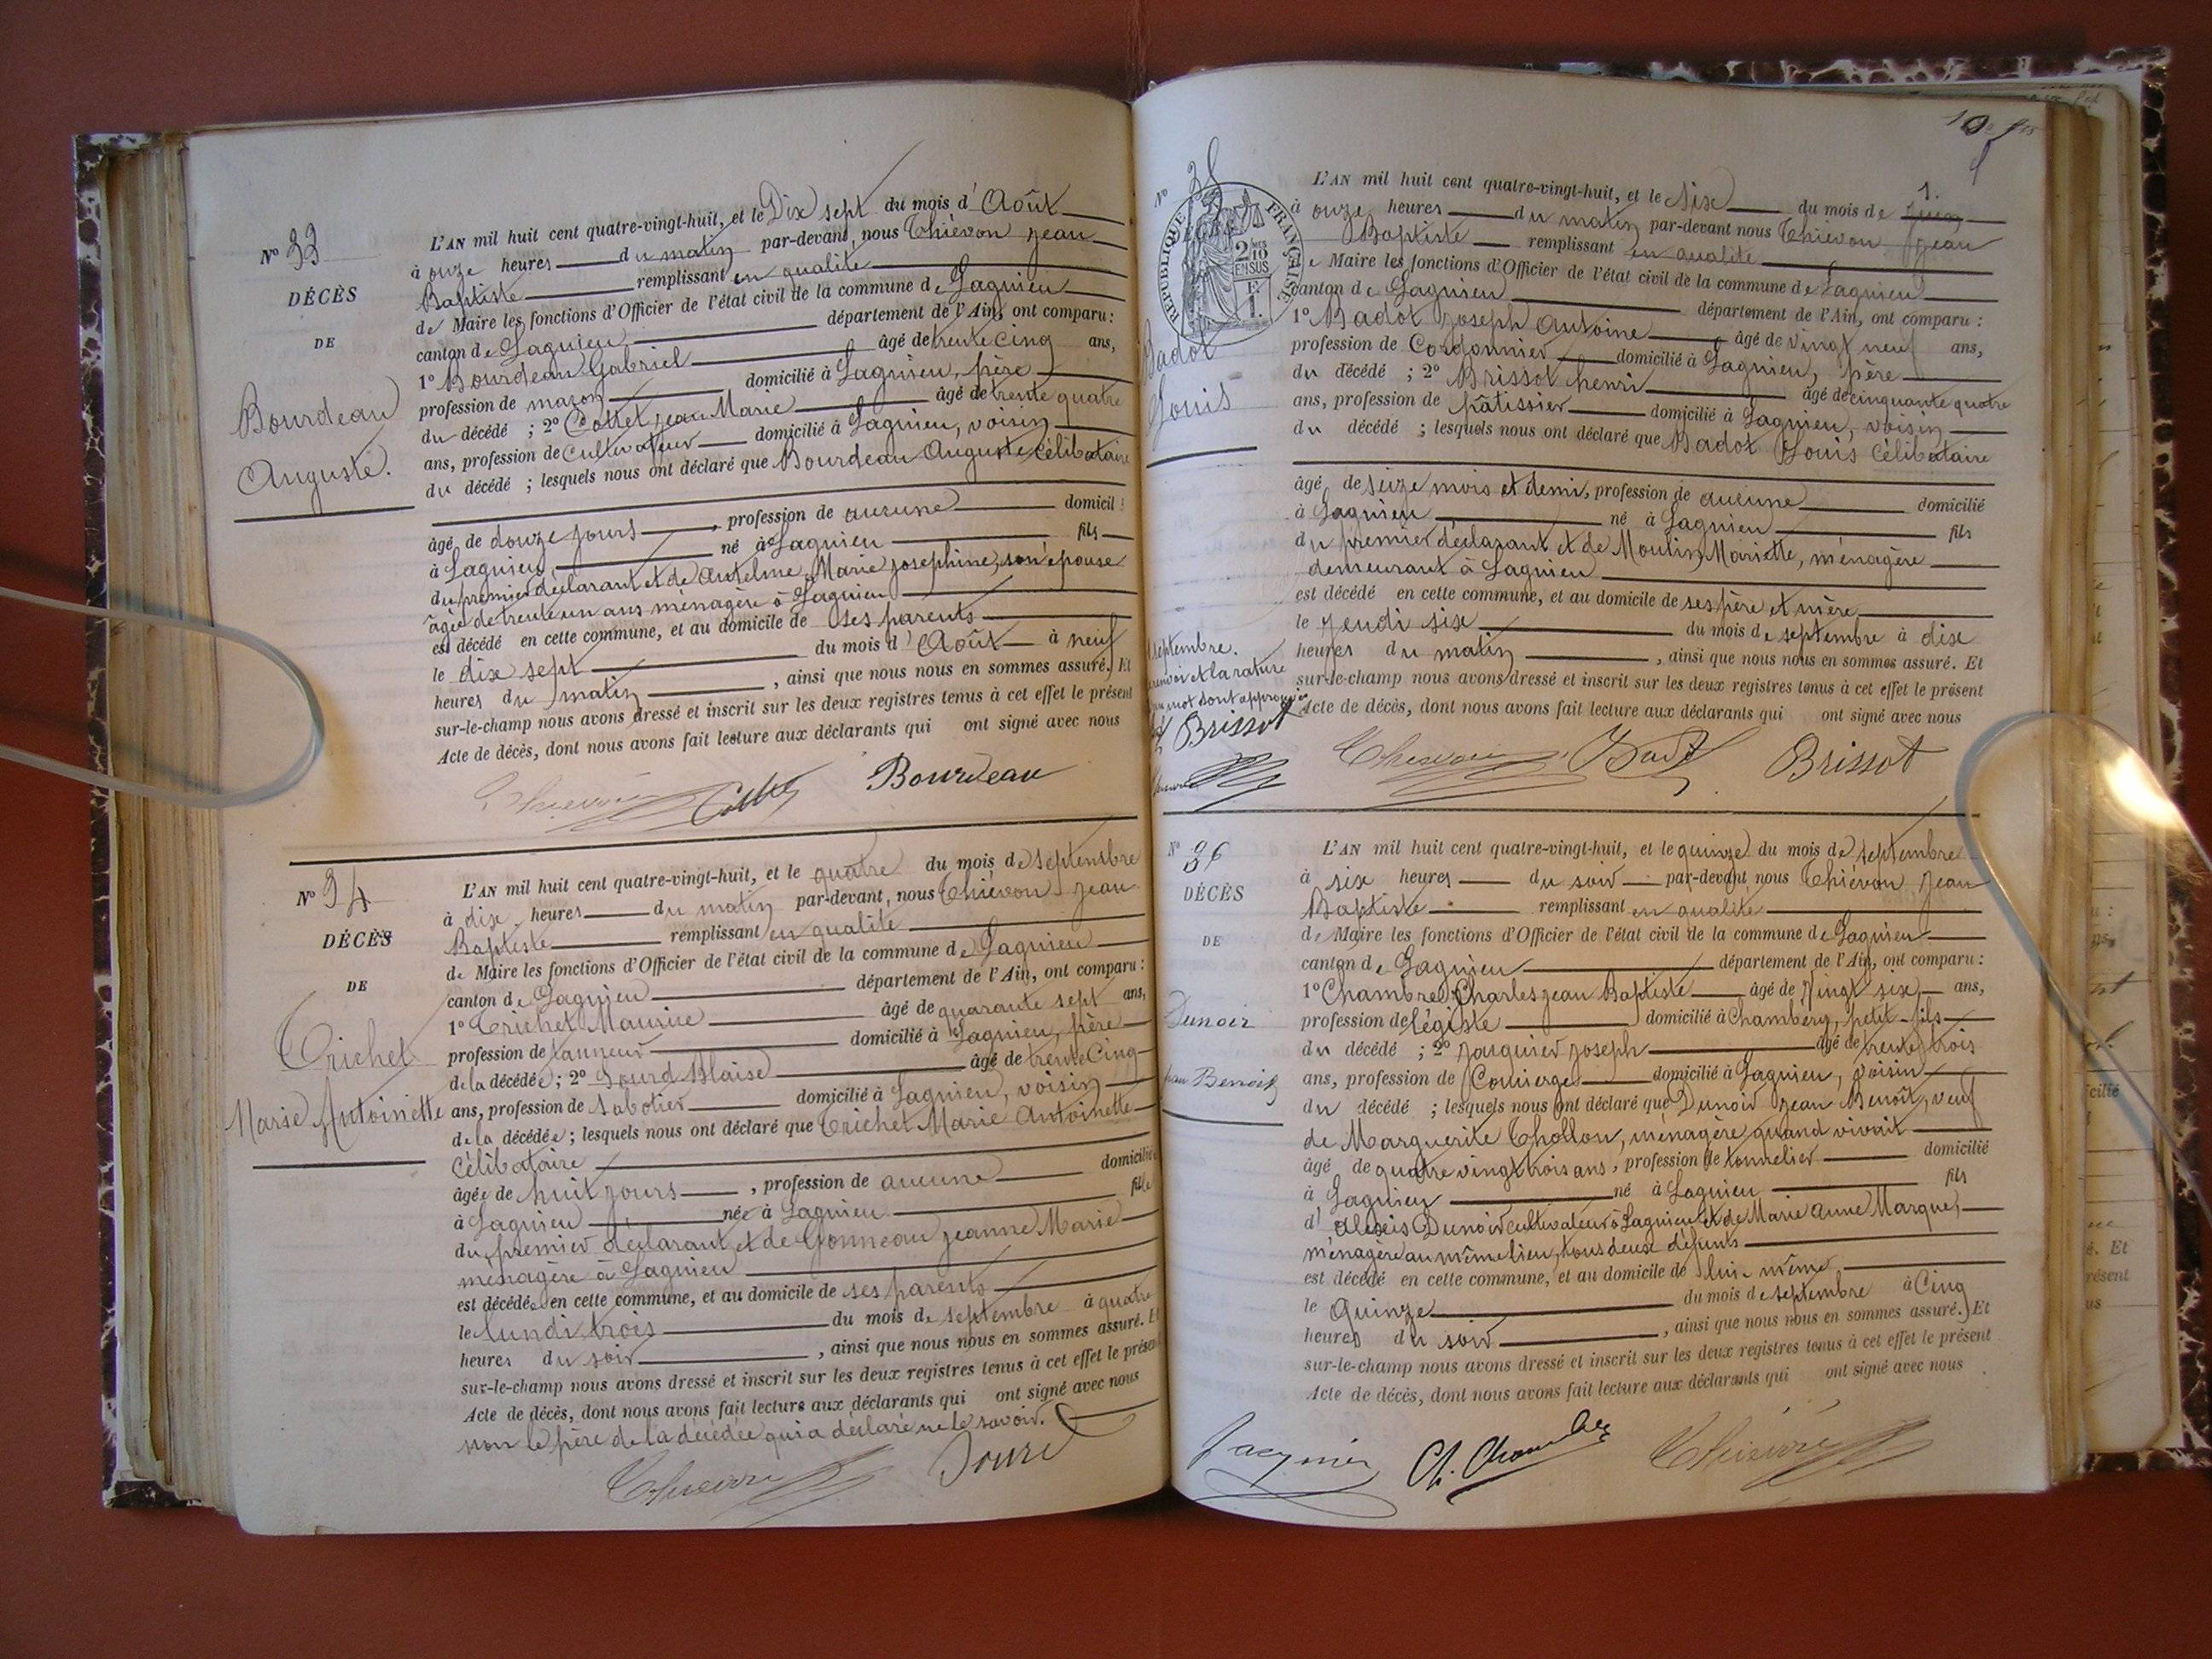 N° 33
DÉCÈS
DE
Bourdeau
Auguste.
L'AN mil huit cent quatre-vingt-huit, et le Dix sept du mois d'Août
à onze heures du matin par-devant nous Thiévon Jean
Baptiste remplissant en qualité
de Maire les fonctions d'Officier de l'état civil de la commune de Lagnieu
canton de Lagnieu département de l'Ain, ont comparu :
1° Bourdeau Gabriel âgé de trente cinq ans,
profession de maçon domicilié à Lagnieu, père
du décédé ; 2° Cottet Jean Marie âgé de trente quatre
ans, profession de Cultivateur domicilié à Lagnieu, voisin
du décédé ; lesquels nous ont déclaré que Bourdeau Auguste, Célibataire
âgé de douze jours, profession de aucune domicil
à Lagnieu, né à Lagnieu fils
du premier déclarant et de Antelme, Marie Josephine, son épouse
âgée de trente un ans ménagère à Lagnieu
est décédé en cette commune, et au domicile de ses parents
le dix sept du mois d'Août à neuf
heures du matin, ainsi que nous nous en sommes assuré. Et
sur-le-champ nous avons dressé et inscrit sur les deux registres tenus à cet effet le présent
Acte de décès, dont nous avons fait lecture aux déclarants qui ont signé avec nous
Bourdeau
N° 34
DÉCÈS
DE
Trichet
Marie Antoinette
L'AN mil huit cent quatre-vingt-huit, et le quatre du mois de septembre
à dix heures du matin par-devant, nous Thiévon Jean
Baptiste remplissant en qualité
de Maire les fonctions d'Officier de l'état civil de la commune de Lagnieu
canton de Lagnieu département de l'Ain, ont comparu :
1° Trichet Maurice âgé de quarante sept ans,
profession de tanneur domicilié à Lagnieu, père
de la décédée ; 2° Sourd Blaise âgé de trente Cinq
ans, profession de sabotier domicilié à Lagnieu, voisin
de la décédée ; lesquels nous ont déclaré que Trichet Marie Antoinette
Célibataire
âgée de huit jours, profession de aucune domicilié
à Lagnieu née à Lagnieu fille
du premier déclarant et de Gonneau Jeanne Marie
ménagère à Lagnieu
est décédée en cette commune, et au domicile de ses parents
le lundi trois du mois de septembre à quatre
heures du soir, ainsi que nous nous en sommes assuré. Et
sur-le-champ nous avons dressé et inscrit sur les deux registres tenus à cet effet le présent
Acte de décès, dont nous avons fait lecture aux déclarants qui ont signé avec nous
non le père de la décédée qui a déclaré ne le savoir.
Sourd
N° 35
RÉPUBLIQUE FRANÇAISE
2/10 EN SUS
Badot
Louis
L'AN mil huit cent quatre-vingt-huit, et le Six du mois de juin 1.
à onze heures du matin par-devant nous Thiévon Jean
Baptiste remplissant en qualité
e Maire les fonctions d'Officier de l'état civil de la commune de Lagnieu
canton de Lagnieu département de l'Ain, ont comparu :
1° Badot Joseph Antoine âgé de vingt neuf ans,
profession de Cordonnier domicilié à Lagnieu, père
du décédé ; 2° Brissot henri âgé de cinquante quatre
ans, profession de pâtissier domicilié à Lagnieu, voisin
du décédé ; lesquels nous ont déclaré que Badot Louis Célibataire
âgé de seize mois et demi, profession de aucune domicilié
à Lagnieu né à Lagnieu fils
du premier déclarant et de Moulin Mariette, ménagère
demeurant à Lagnieu
est décédé en cette commune, et au domicile de ses père et mère
le jeudi six du mois de septembre à dix
heures du matin, ainsi que nous nous en sommes assuré. Et
sur-le-champ nous avons dressé et inscrit sur les deux registres tenus à cet effet le présent
Acte de décès, dont nous avons fait lecture aux déclarants qui ont signé avec nous
septembre.
renvoi et la rature
mot sont approuvés
Brissot
Brissot
N° 36
DÉCÈS
DE
Dunoir
Jean Benoit
L'AN mil huit cent quatre-vingt-huit, et le quinze du mois de septembre
à six heures du soir par-devant nous Thiévon Jean
Baptiste remplissant en qualité
de Maire les fonctions d'Officier de l'état civil de la commune de Lagnieu
canton de Lagnieu département de l'Ain, ont comparu :
1° Chambre Charles Jean Baptiste âgé de Vingt six ans,
profession de légiste domicilié à Chambéry, petit-fils
du décédé ; 2° Jacquier Joseph âgé de trente trois
ans, profession de Concierge domicilié à Lagnieu, voisin
du décédé ; lesquels nous ont déclaré que Dunoir Jean Benoît, veuf
de Marguerite Thollon, ménagère quand vivait
âgé de quatre vingt trois ans, profession de tonnelier domicilié
à Lagnieu né à Lagnieu fils
d'Alexis Dunoir cultivateur à Lagnieu et de Marie Anne Marque,
ménagère au même lieu, tous deux défunts
est décédé en cette commune, et au domicile de lui-même
le Quinze du mois de septembre à Cinq
heures du soir, ainsi que nous nous en sommes assuré. Et
sur-le-champ nous avons dressé et inscrit sur les deux registres tenus à cet effet le présent
Acte de décès, dont nous avons fait lecture aux déclarants qui ont signé avec nous
Jacquier